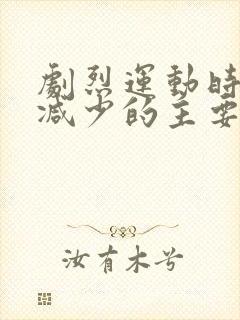 劇烈運動時
减少的主要
汝有木兮